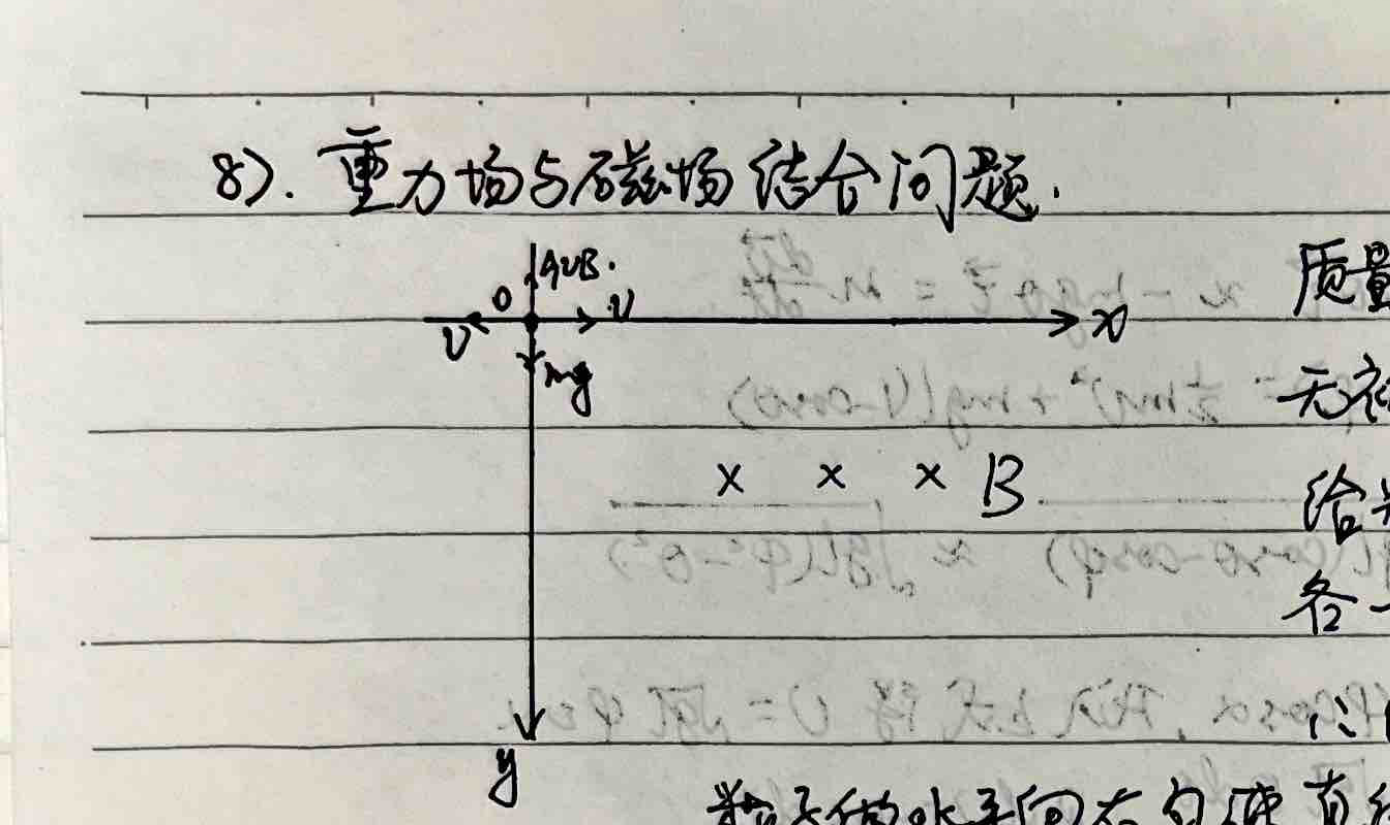 8). 重力场与磁场结合问题.
qvB.
质量
O v
v x
mg
无初
× × × B
给
各一
y
粒子做水平向右匀速直线